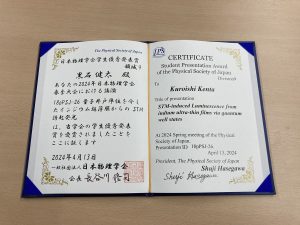 The Physical Society of Japan
日本物理学会学生優秀発表賞
領域9
黒石健太 殿
あなたの2024年日本物理学会
春季大会における講演
18pPSJ-26 量子井戸準位を介し
たインジウム超薄膜からのSTM
誘起発光
は、当学会の学生優秀発表
賞を受賞されましたことを
ここに証します
2024年4月13日
一般社団法人日本物理学会
会長 長谷川修司
JPS
CERTIFICATE
Student Presentation Award
of the Physical Society of Japan
Division 9
To
Kuroishi Kenta
Title of presentation
STM-induced Luminescence from
indium ultra-thin films via quantum
well states
At 2024 Spring meeting of the Physical
Society of Japan.
Presentation ID 18pPSJ-26
April 13, 2024
President, The Physical Society of Japan
Shuji Hasegawa
Shuji Hasegawa